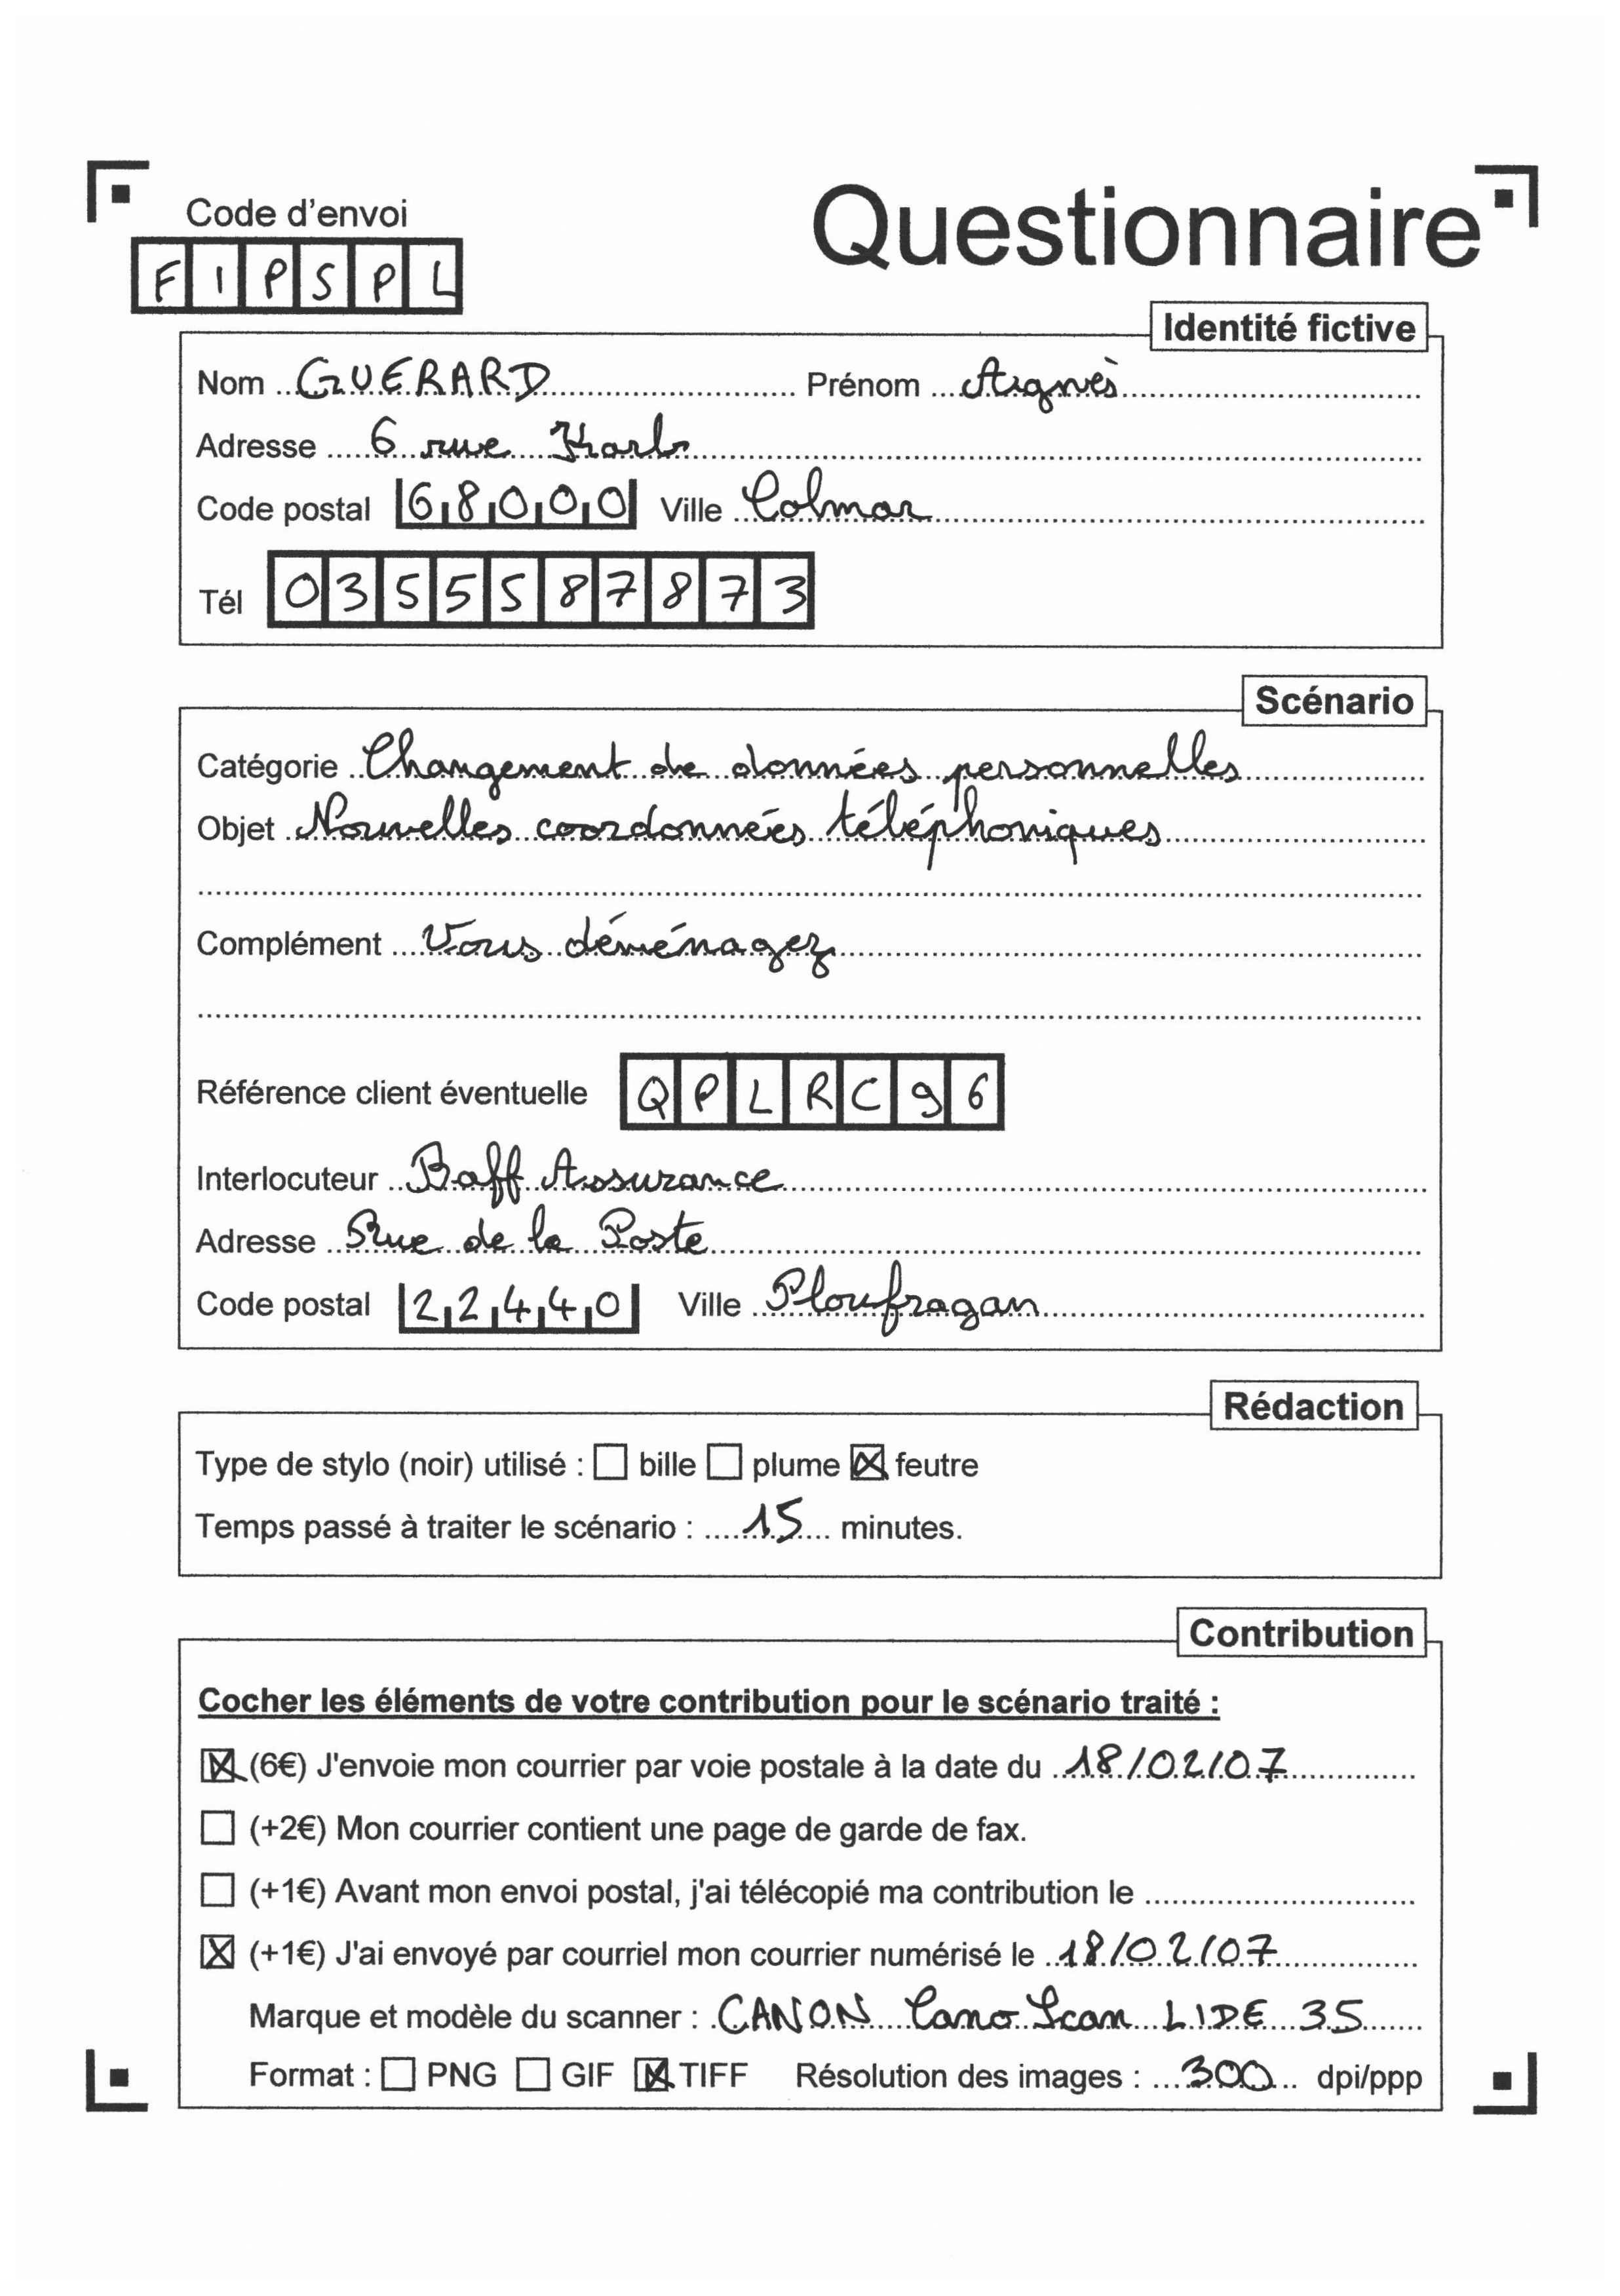 Code d'envoi
Questionnaire
FIPSPL
Identité fictive
Nom GUERARD Prénom Aignès
Adresse 6 rue
Code postal 68000 Ville Colmar
Tél 0355587873
Scénario
Catégorie Changement de données personnelles
Objet Nouvelles coordonnées téléphoniques
Complément Vous déménagez
Référence client éventuelle QPLRC96
Interlocuteur Baff Assurance
Adresse Rue de la Poste
Code postal 22440 Ville Ploufragan
Rédaction
Type de stylo (noir) utilisé : ☐ bille ☐ plume ☒ feutre
Temps passé à traiter le scénario : 15 minutes.
Contribution
Cocher les éléments de votre contribution pour le scénario traité :
☒ (6€) J'envoie mon courrier par voie postale à la date du 18/02/07
☐ (+2€) Mon courrier contient une page de garde de fax.
☐ (+1€) Avant mon envoi postal, j'ai télécopié ma contribution le
☒ (+1€) J'ai envoyé par courriel mon courrier numérisé le 18/02/07
Marque et modèle du scanner : CANON CanoScan LIDE 35
Format : ☐ PNG ☐ GIF ☒ TIFF Résolution des images : 300 dpi/ppp